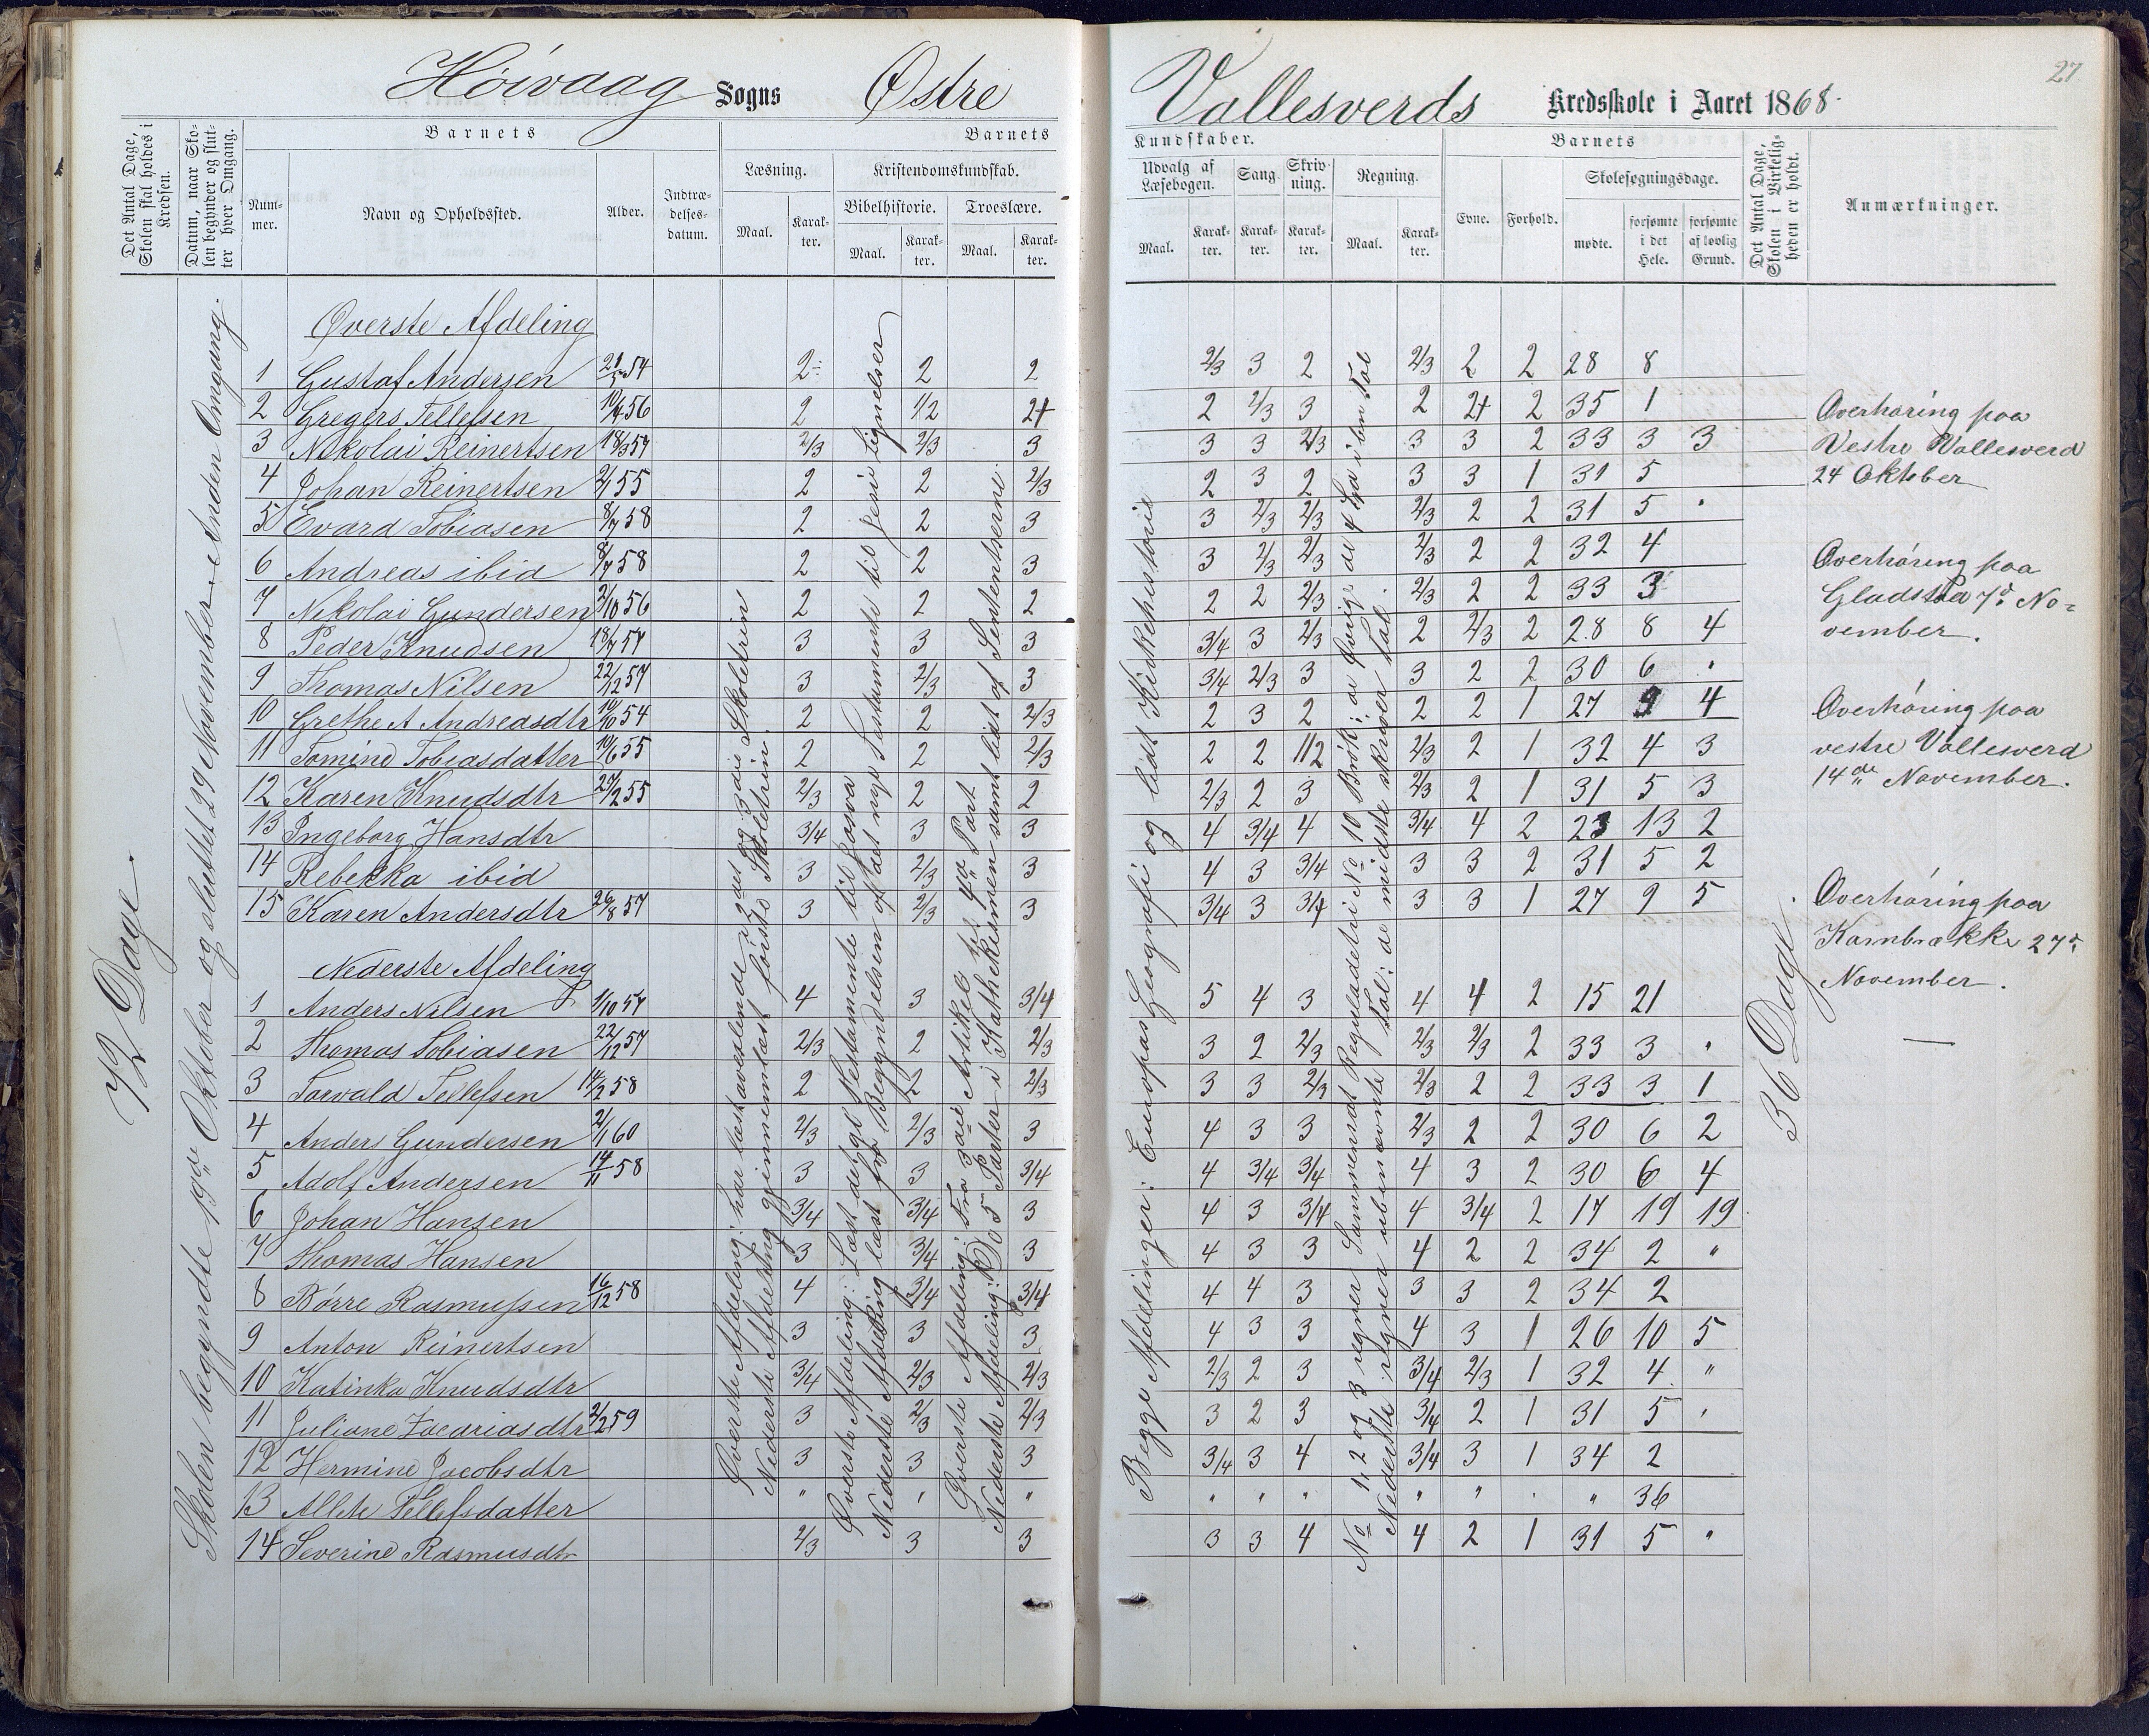 Høivaag Sogns Østre Vallesverds Kredsskole i Aaret 1868.
27.
Det Antal Dage, Skolen skal holdes i Kredsen.
Datum, naar Skolen begynder og slutter hver Omgang.
Barnets
Nummer.
Navn og Opholdssted.
Alder.
Indtrædelsesdatum.
Barnets Kundskaber.
Læsning.
Maal.
Karakter.
Kristendomskundskab.
Bibelhistorie.
Maal.
Karakter.
Troeslære.
Maal.
Karakter.
Udvalg af Læsebogen.
Maal.
Karakter.
Sang.
Karakter.
Skrivning.
Karakter.
Regning.
Maal.
Karakter.
Barnets
Evne.
Forhold.
Skolesøgningsdage.
mødte.
forsømte i det Hele.
forsømte af lovlig Grund.
Det Antal Dage, Skolen i Virkeligheden er holdt.
Anmærkninger.
72 Dage.
Skolen begyndte 19de Oktober og sluttet 29 November – Anden Omgang.
Øverste Afdeling
1 Gustaf Andersen 21/5 54 2÷ 2 2 2/3 3 2 2/3 2 2 28 8
2 Gregers Tellefsen 10/4 56 2 1/2 2+ 2 2/3 3 2 2+ 2 35 1
3 Nikolai Reinertsen 18/3 57 2/3 2/3 3 3 3 2/3 3 3 2 33 3 3
4 Johan Reinertsen 2/1 55 2 2 2/3 2 3 2 3 3 1 31 5
5 Evard Tobiasen 8/7 58 2 2 3 3 2/3 2/3 2/3 2 2 31 5 "
6 Andreas ibid 8/7 58 2 2 3 3 2/3 2/3 2/3 2 2 32 4
7 Nikolai Gundersen 2/10 56 2 2 2 2 2 2/3 2/3 2 2 33 3
8 Peder Knudsen 18/7 57 3 3 3 3/4 3 2/3 2 2/3 2 28 8 4
9 Thomas Nilsen 22/12 57 3 2/3 3 3/4 2/3 3 3 2 2 30 6 "
10 Grethe A Andreasdtr 10/10 54 2 2 2/3 2 3 2 2 2 1 27 9 4
11 Tomine Tobiasdatter 10/6 55 2 2 2/3 2 2 1/2 2/3 2 1 32 4 3
12 Karen Knudsdtr 27/2 55 2/3 2 2 2/3 2 3 2/3 2 1 31 5 3
13 Ingeborg Hansdtr 3/4 3 3 4 3/4 4 3/4 4 2 23 13 2
14 Rebekka ibid 3 2/3 3 4 3 3/4 3 3 2 31 5 2
15 Karen Andersdtr 26/8 57 3 2/3 3 3/4 3 3/4 3 3 1 27 9 5
Nederste Afdeling
1 Anders Nilsen 1/10 57 4 3 3/4 5 4 3 4 4 2 15 21
2 Thomas Tobiasen 22/12 57 2/3 2 2/3 3 2 2/3 2/3 2/3 2 33 3 "
3 Torvald Tellefsen 14/2 58 2 2 2/3 3 3 2/3 2/3 2 2 33 3 1
4 Anders Gundersen 2/1 60 2/3 2/3 3 4 3 3 2/3 2 2 30 6 2
5 Adolf Andersen 14/11 58 3 3 3/4 4 3/4 3/4 4 3 2 30 6 4
6 Johan Hansen 3/4 3/4 3 4 3 3/4 4 3/4 2 17 19 19
7 Thomas Hansen 3 3/4 3 4 3 3 4 2 2 34 2 "
8 Børre Rasmussen 16/12 58 4 3/4 3/4 4 4 3 3 3 2 34 2
9 Anton Reinertsen 3 3 3 4 3 3 4 3 1 26 10 5
10 Katinka Knudsdtr 3/4 2/3 2/3 2/3 2 3 3/4 2/3 1 32 4 "
11 Juliane Zacariasdtr 2/2 59 3 2/3 2/3 3 2 3 3/4 2 1 31 5 "
12 Hermine Jacobsdtr 3 3 3 3/4 3 4 3/4 3 1 34 2
13 Allete Tellefsdatter " " " " " " " " " " 36
14 Severine Rasmusdtr 2/3 3 3 3 3 4 4 2 1 31 5 "
Øverste Afdeling: har læst avexlende i 2det og 3die Skoletrin
Nederste Afdeling gjennemlæst første Skoletrin.
Øverste Afdeling: Læst det gl Testamente til Josva
Nederste Afdeling læst fra Begyndelsen af det nye Testamente til Jesu Lignelser
Øverste Afdeling: Fra 3die Artikel til 4de Part
Nederste Afdeling: Do 5 Parter i Kathekismen samt lidt af Sententserne
Begge Afdelinger: Europas Geografi og lidt Kirkehistorie
No 1, 2 og 3 regner Sammensat Reguladetri No 10 Brøk; de Øvrige de 4 Spa i bn Tal
Nederste regner ubenævnte Tal: de mindste skriver Tal.
36 Dage
Overhøring paa
Vestre Vallesverd
24 Oktober
Overhøring paa
Gladstad 7d No=
vember.
Overhøring paa
vestre Vallesverd
14de November.
Overhøring paa
Kambrække 27d
November.